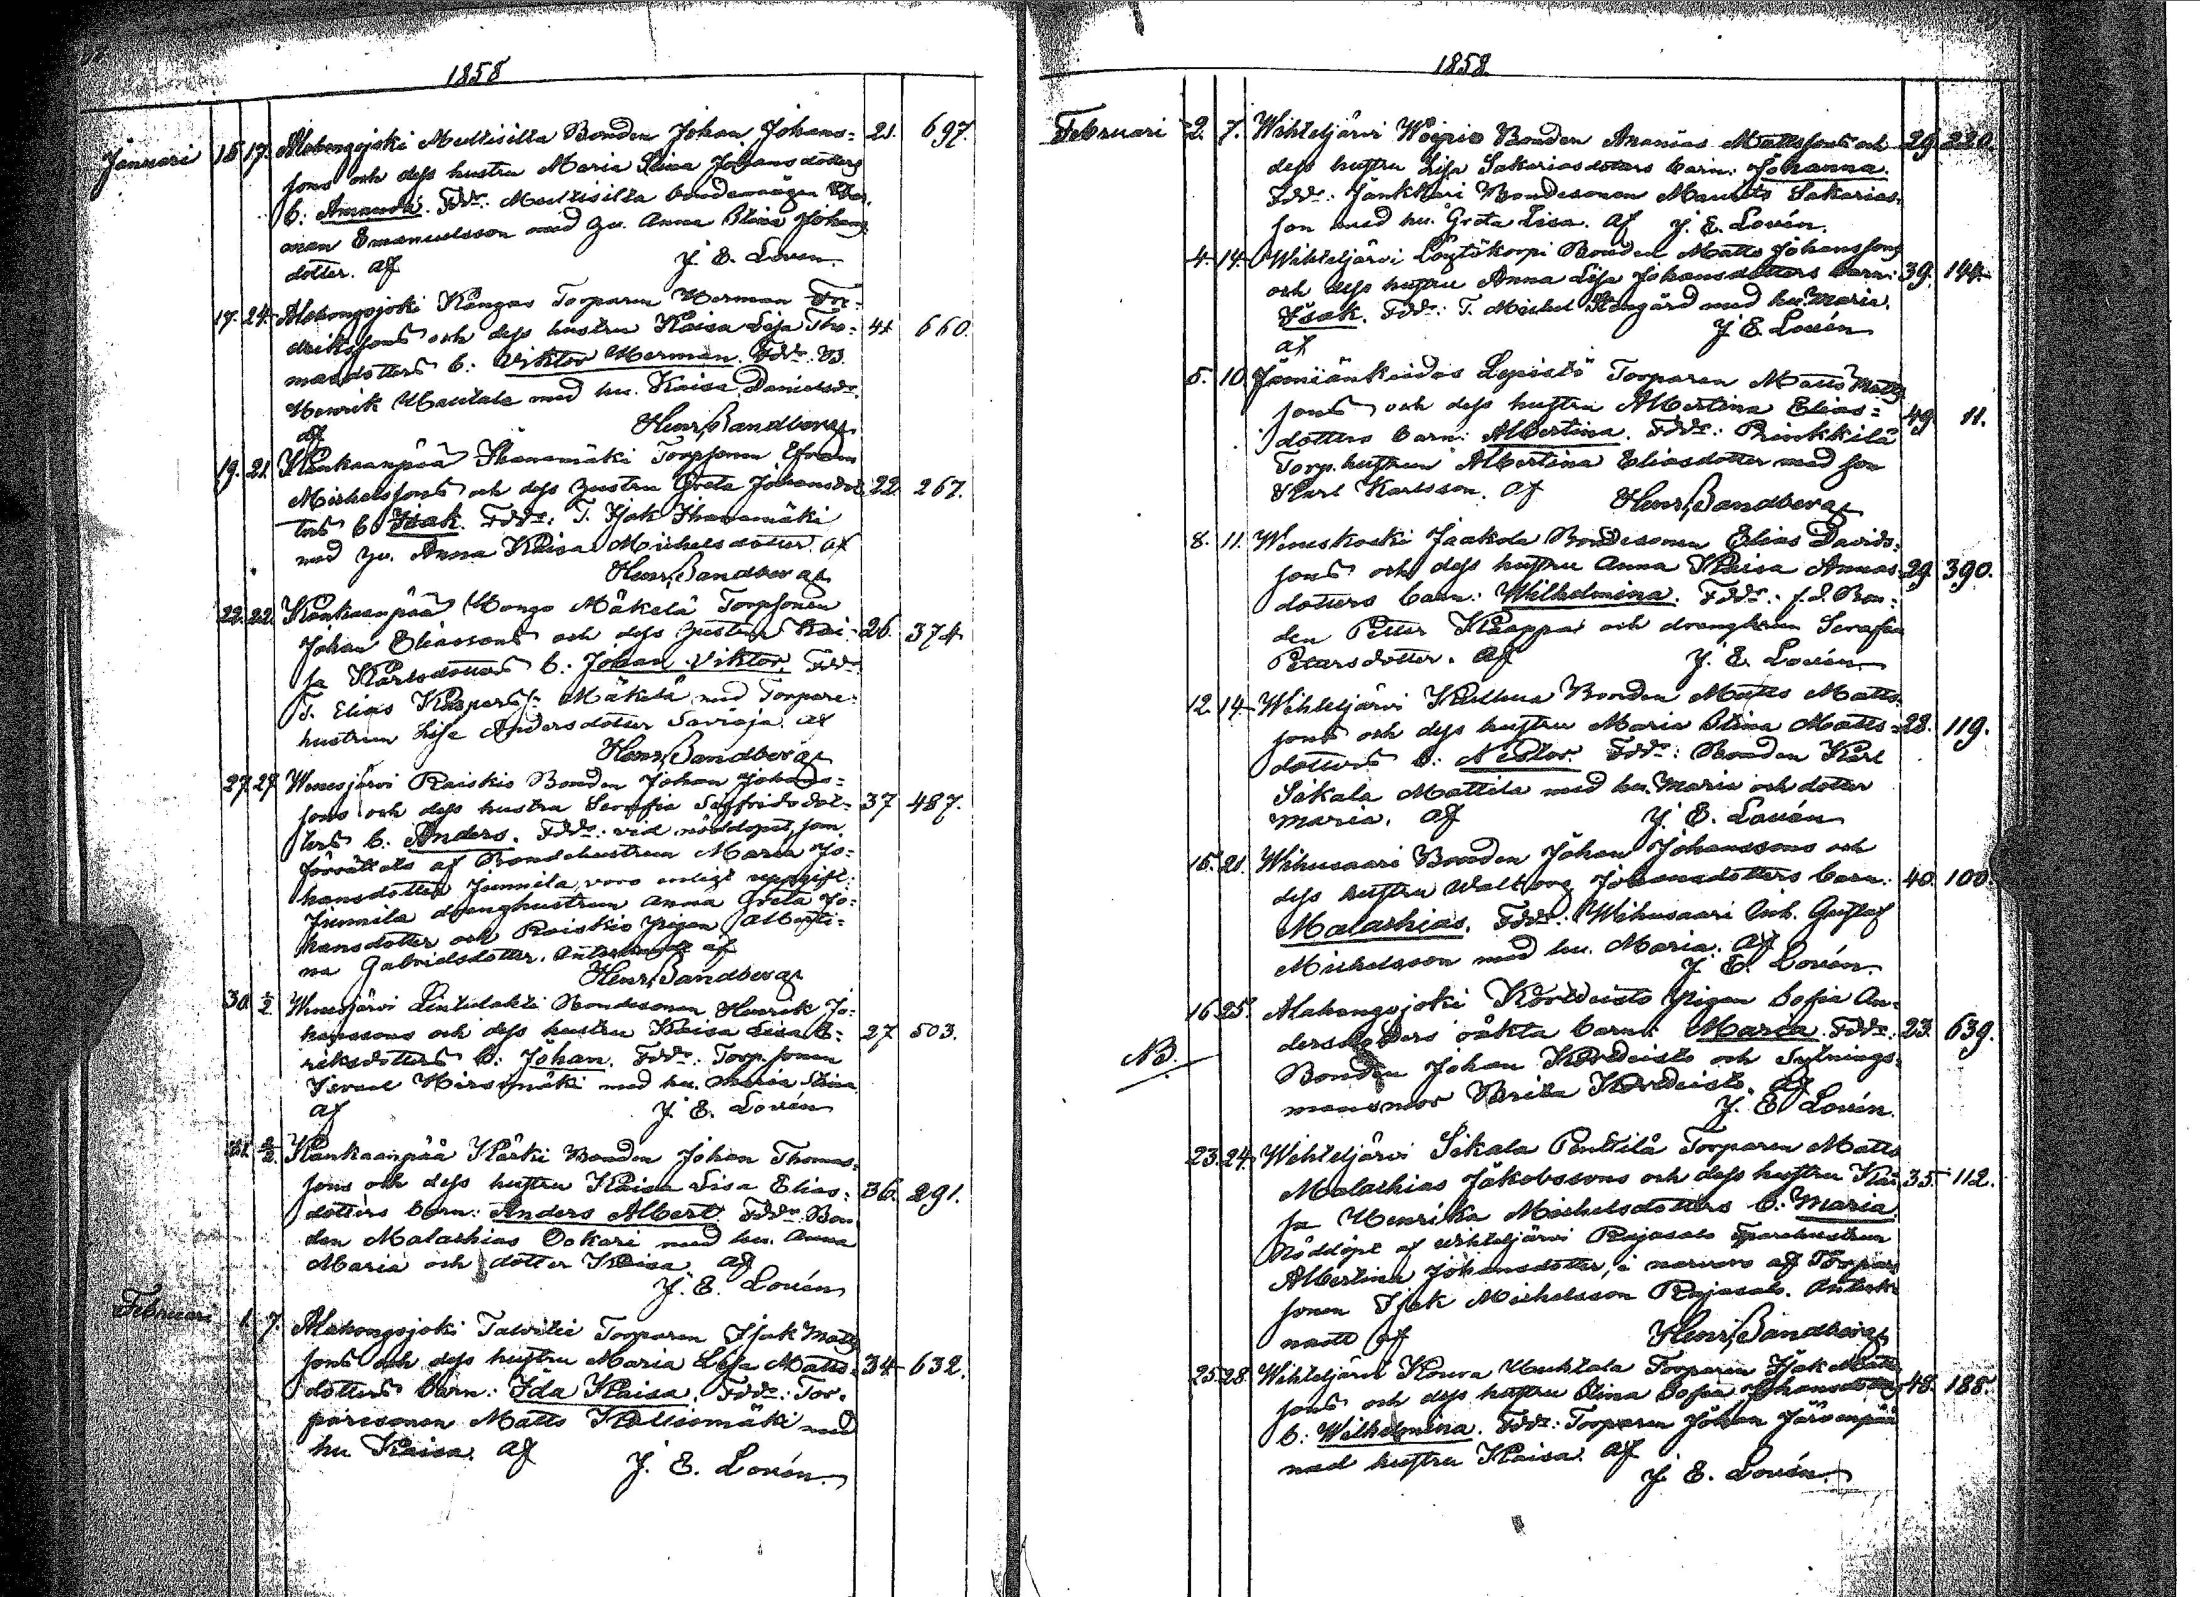 1858
Januari 15. 17. Alahongojoki Multisilta Bonden Johan Johans= 21. 697.
sons och dess hustru Maria Lisa Johansdotters
b: Amanda. Fdr: Multisilta bondemågen
man Emanuelsson med hu. Anna Stina Johans
dotter. af J. E. Lovén.
17. 24. Alahongojoki Kangas Torparen Herman Fre=
driksons och dess hustru Kaisa Lisa Tho= 41 660.
masdotters b: Viktor Herman. Fdr: B.
Henrik Uusitalo med hu. Kaisa Danielsdr.
af Henr. Sandberg
19. 21. Kankaanpää Ihanamäki Torpsonen Efraim
Michelssons och dess hustru Greta Johansdot 22. 267.
ters b Isak. Fdr: T. Isak Ihanamäki
med hu. Anna Kaisa Michelsdotter. af
Henr. Sandberg
22. 22. Kankaanpää Hongo Mäkelä Torpsonen
Johan Eliassons och dess hustru Kai= 26. 374.
sa Karlsdotters b: Johan Viktor. Fdr
T. Elias Kaspersn Mäkelä med Torpare=
hustrun Lisa Andersdotter Savioja. af
Henr. Sandberg
27. 27. Wenesjärvi Raiskio Bonden Johan Johans=
sons och dess hustru Serafia Sigfridsdot= 37 487.
ters b: Anders. Fdr: vid nöddopet, som
förrättats af Bondehustrun Maria Jo=
hansdotter Junnila, voro enligt uppgift:
Junnila dränghustrun Anna Greta Jo=
hansdotter och Raiskio pigan Alberti=
na Gabrielsdotter. Antecknadt af
Henr. Sandberg
30. 2/2 Wenesjärvi Lintulahti Bondesonen Henrik Jo=
hanssons och dess hustru Kaisa Lisa E= 27 503.
riksdotters b: Johan. Fdr: Torp.sonen
Israel Hirsimäki med hu. Maria Stina
af J. E. Lovén
31. 2/2. Kankaanpää Kärki Bonden Johan Thomas=
sons och dess hustru Kaisa Lisa Elias= 36. 291.
dotters barn: Anders Albert. Fdr: Bon
den Malachias Ookari med hu. Anna
Maria och dotter Kaisa. af
J. E. Lovén
Februari 1. 7. Alahongojoki Talvitie Torparen Isak Matts
sons och dess hustru Maria Lisa Matts= 34 632.
dotters barn: Ida Kaisa. Fdr: Tor=
paresonen Matts Kalliomäki med
hu Kaisa. af J. E. Lovén.
1858
Februari 2. 7. Wihteljärvi Wojrio Bonden Ananias Mattssons och 29. 220.
dess hustru Lisa Sakariasdotters barn: Johanna.
Fdr: Jänkkäri Bondesonen Maunits Sakarias=
son med hu. Greta Lisa. af J. E. Lovén.
4. 14. Wihteljärvi Löytökorpi Bonden Matts Johanssons
och dess hustru Anna Lisa Johansdotters barn: 39. 144.
Isak. Fdr: T. Michel Hongård med hu. Maria.
af J. E. Lovén
5. 10. Jämiänkeidas Lepistö Torparen Matts Matts
sons och dess hustru Albertina Elias=
dotters barn: Albertina. Fdr: Prinkkilä 49. 11.
Torp.hustrun Albertina Eliasdotter med son
Karl Karlsson. af Henr. Sandberg
8. 11. Weneskoski Jaakola Bondesonen Elias Davids=
sons och dess hustru Anna Kaisa Annas 29. 390.
dotters barn: Wilhelmina. Fdr: f.d. Bon=
den Petter Kaappa och dränghun Serafia
Petersdotter. af J. E. Lovén
12. 14. Wihteljärvi Kulhua Bonden Matts Matts=
sons och dess hustru Maria Stina Matts= 28. 119.
dotters b: Nestor. Fdr: Bonden Karl
Sikala Mattila med hu. Maria och dotter
Maria. af J. E. Lovén
15. 21. Wihusaari Bonden Johan Johanssons och
dess hustru Walborg Johansdotters barn: 40. 100.
Malachias. Fdr: Wihusaari Inh. Gustaf
Michelsson med hu. Maria. af
J. E. Lovén.
16. 25. Alahongojoki Kortteisto pigan Sofia An=
dersdotters oäkta barn: Maria. Fdr: 23. 639.
NB. Bonden Johan Kortteisto och Sytnings=
mansmor Brita Kortteisto. af
J. E. Lovén.
23. 24. Wihteljärvi Sikala Penttilä Torparen Matts
Malachias Jakobssons och dess hustru Kai 35. 112.
sa Henrika Michelsdotters b: Maria
Nöddöpt af Wihteljärvi Rajasalo Tparehustrun
Albertina Johansdotter, i närvaro af Torpare
sonen Isak Michelsson Rajasalo. Anteck
nadt af Henr. Sandberg
25. 28. Wihteljärvi Koura Uusitalo Torparen Isak Matts
sons och dess hustru Stina Sofia Johansdotters 48. 188.
b: Wilhelmina. Fdr: Torparen Johan Järvenpää
med hustru Kaisa. af
J. E. Lovén.